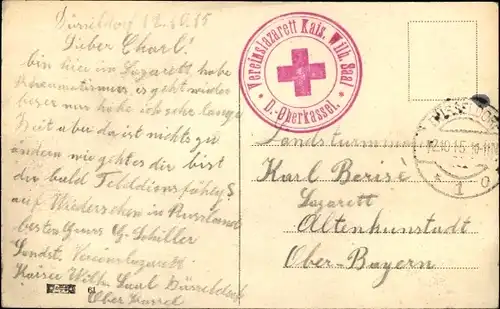 Düsseldorf 12.10.15
Lieber Charl!
bin hier im Lazarett, habe
Rheumatismus, es geht wieder
besser nur habe ich sehr lange
Zeit aber da ist nichts zu
ändern wie geht es dir bist
du bald Felddienstfähig
auf Wiedersehen in Russland
besten Gruss G. Schiller
Landst. Vereinslazarett
Kaiser Wilh. Saal Düsseldorf
Ober Kassel
61
Vereinslazarett Kais. Wilh. Saal
* D.-Oberkassel. *
DÜSSELDORF
12.10.15
* 1 o
Landsturmmann
Karl Berisé
Lazarett
Altenkunstadt
Ober-Bayern